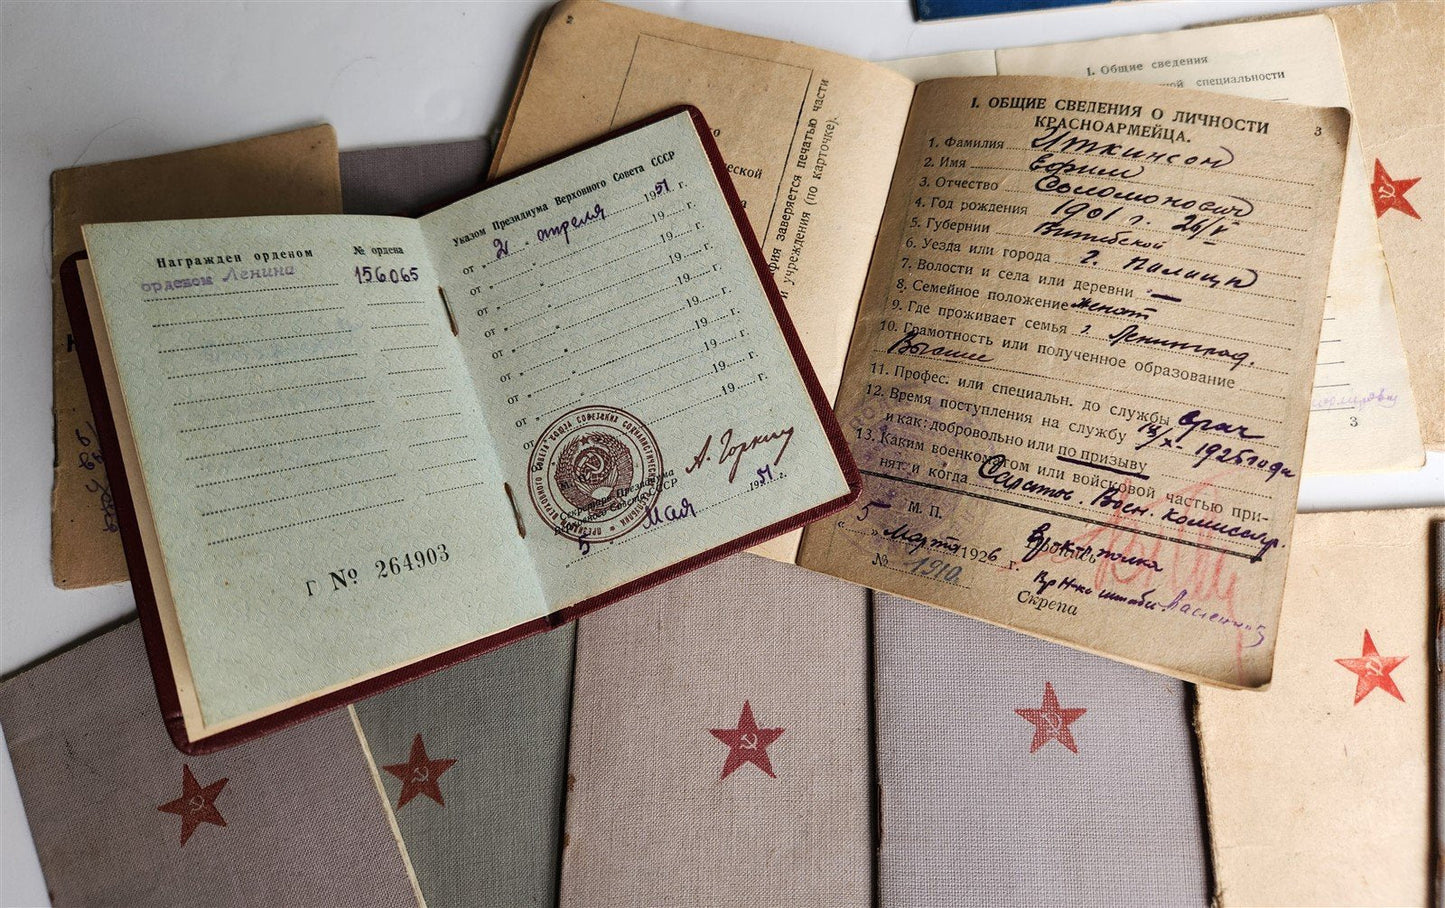 Награжден орденом № ордена
орденом Ленина 156065
Г № 264903
Указом Президиума Верховного Совета СССР
от „ 21 „ апреля 1951 г.
от „ „ 19 г.
от „ „ 19 г.
от „ „ 19 г.
от „ „ 19 г.
от „ „ 19 г.
от „ „ 19 г.
от „ „ 19 г.
М. П.
Секретарь Президиума
Верховного Совета СССР
А. Горкин
5 Мая 1951 г.
фия заверяется печатью части
и учреждения (по карточке).
ческой
3
I. ОБЩИЕ СВЕДЕНИЯ О ЛИЧНОСТИ
КРАСНОАРМЕЙЦА.
1. Фамилия Иткинсон
2. Имя Ефим
3. Отчество Соломонович
4. Год рождения 1901 г. 26/V
5. Губернии Витебской
6. Уезда или города г.
7. Волости и села или деревни —
8. Семейное положение женат
9. Где проживает семья г. Ленинград.
10. Грамотность или полученное образование
Высшее
11. Профес. или специальн. до службы врач
12. Время поступления на службу 1925 года
и как: добровольно или по призыву
13. Каким военкоматом или войсковой частью при-
нят и когда Саратов. Воен. комиссар.
М. П.
„ 5 „ Марта 1926 г.
№ 1910
Скрепа
I. Общие сведения
специальности
3